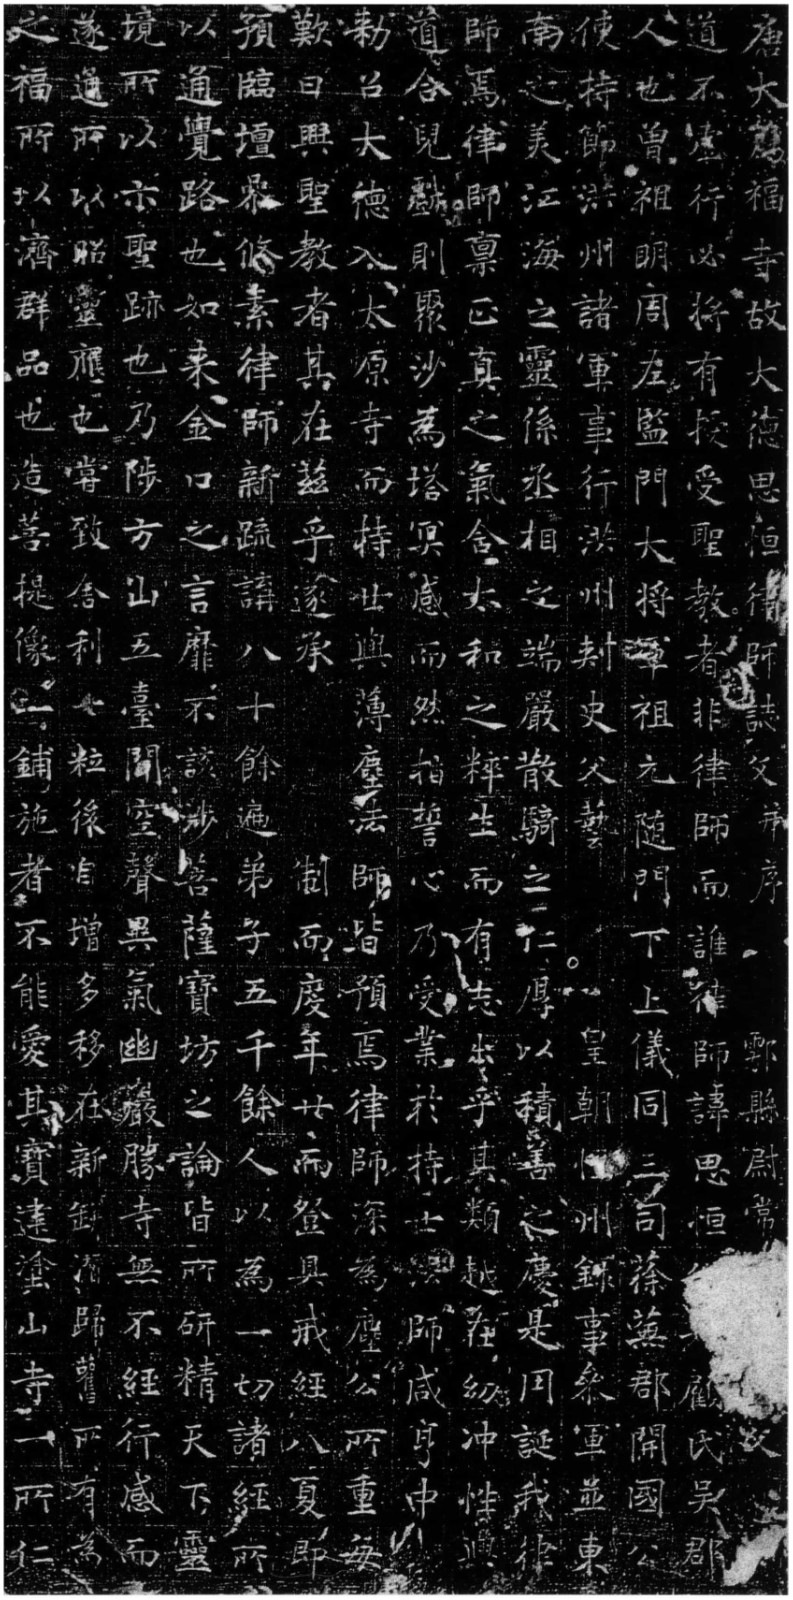 唐大薦福寺故大德思恒律師誌文并序 鄠縣尉常
道不虛行必將有授受聖教者非律師而誰律師諱思恒顧氏吳郡
人也曾祖明周左監門大將軍祖元隋門下上儀同三司蒢蕪郡開國公
使持節洪州諸軍事行洪州刺史父藝 皇朝恒州錄事叅軍並東
南之美江海之靈係丞相之端嚴散騎之仁厚以積善之慶是用誕我律
師焉律師稟正真之氣含太和之粹生而有志出乎其類越在幼沖性與
道合兒戲則聚沙為塔冥感而然指誓心乃受業於持世法師咸亨中
勑召大德入太原寺而持世與薄塵法師皆預焉律師深為塵公所重每
歎曰興聖教者其在茲乎遂承 制而度年廿而登具戒經八夏即
預臨壇最俢素律師新疏講八十餘遍弟子五千餘人以為一切諸經所
以通覺路也如来金口之言靡不該涉菩薩寶坊之論皆所研精天下靈
境所以示聖跡也乃陟方山五臺聞空聲異氣幽巖勝寺無不經行感而
遂通所以昭靈應也嘗致舍利七粒後自增多移在新卸潛歸舊所有為
之福所以濟群品也造菩提像一鋪施者不能愛其寶建塗山寺一所仁